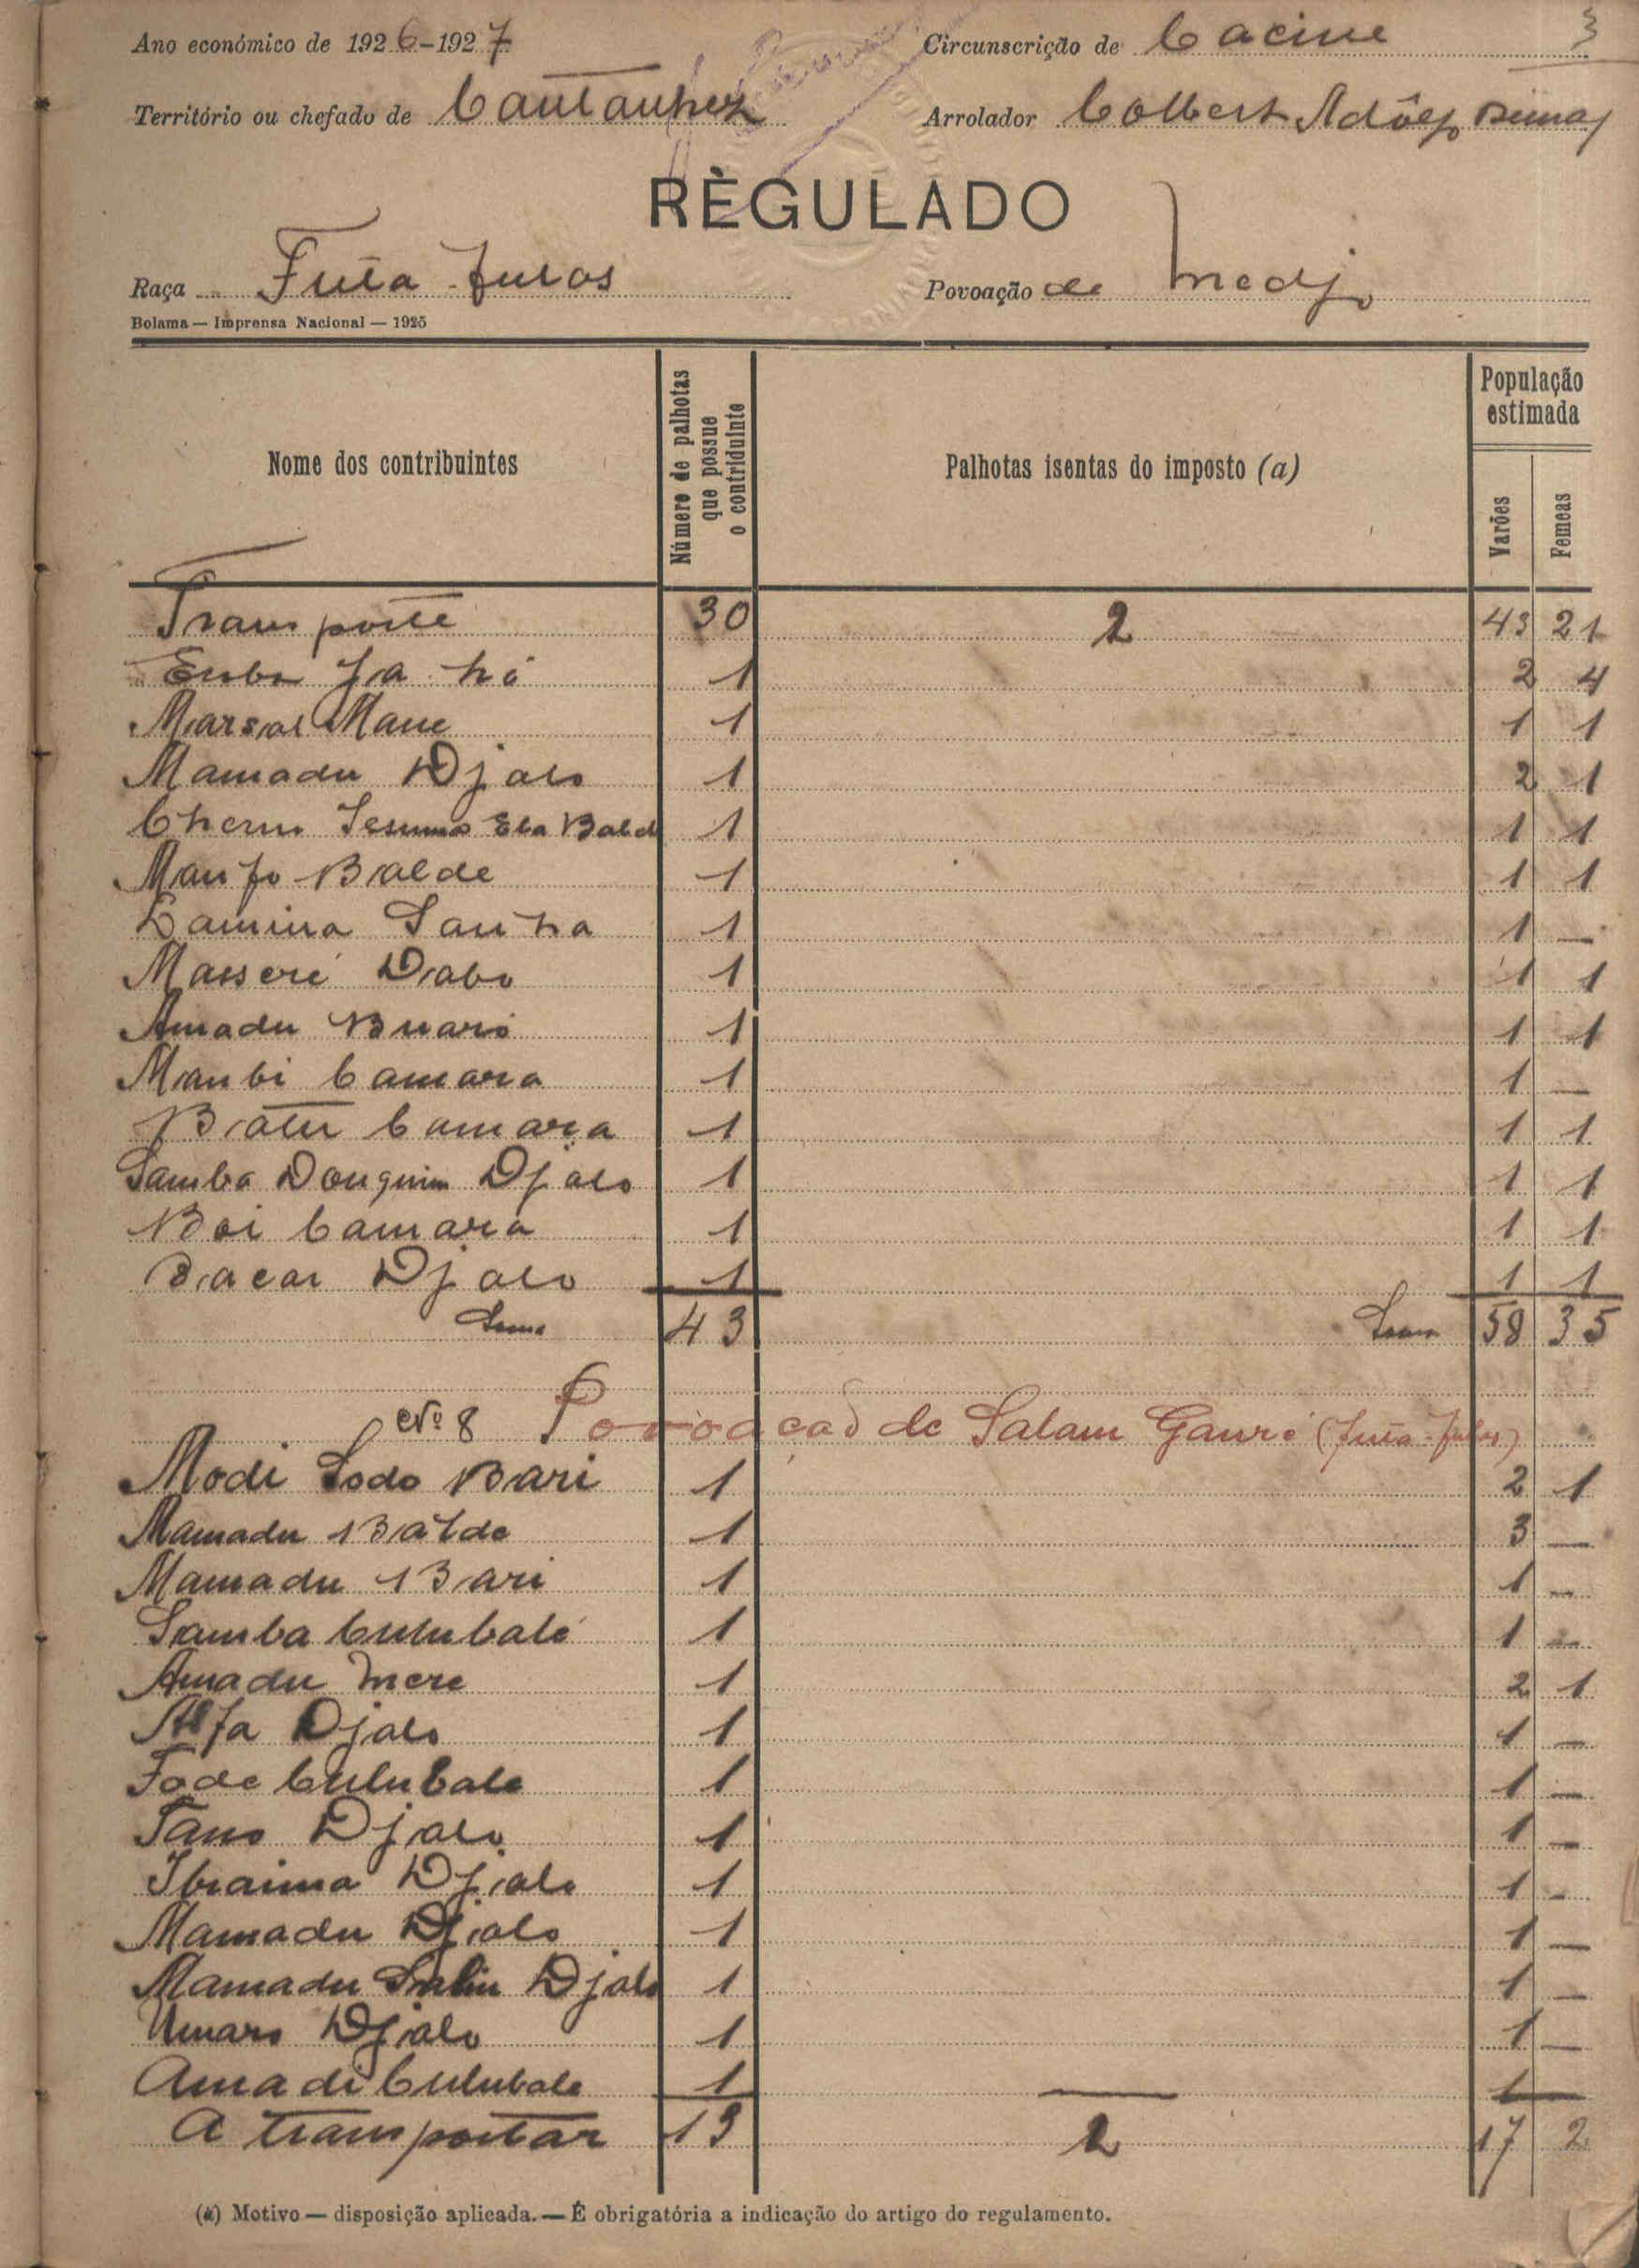 3
Ano económico de 1926-1927 Circunscrição de Cacine
Território ou chefado de Cantanhez Arrolador Colbert Adôlfo
RÈGULADO
Raça Futa-fulos Povoação de Medjo
Bolama — Imprensa Nacional — 1925
Nome dos contribuintes
Número de palhotas que possue o contriduinte
Palhotas isentas do imposto (a)
População estimada
Varões Femeas
Transporte 30 2 43 21
1 2 4
Marsal Mane 1 1 1
Mamadu Djalo 1 2 1
Cherno 1 1 1
Manfo Balde 1 1 1
Lamina Sanha 1 1 —
Masseré Dabo 1 1 1
Amadu Buaró 1 1 1
Manbi Camara 1 1 —
Batu Camara 1 1 1
Samba Donguim Djalo 1 1 1
Boi Camara 1 1 1
Bacar Djalo 1 1 1
Soma 43 Soma 58 35
Nº 8 Povoação de Salam Gauré (futa-fulos)
Modi Sodo Bari 1 2 1
Mamadu Balde 1 3 —
Mamadu Bari 1 1 —
Samba Culubalé 1 1 —
Amadu Mere 1 2 1
Alfa Djalo 1 1 —
Fode Culubale 1 1 —
Tano Djalo 1 1 —
Ibraima Djalo 1 1 —
Mamadu Djalo 1 1 —
Mamadu Djalo 1 1 —
Umaro Djalo 1 1 —
Amadi Culubale 1 — 1 —
A transportar 13 2 17 2
(a) Motivo — disposição aplicada. — É obrigatória a indicação do artigo do regulamento.